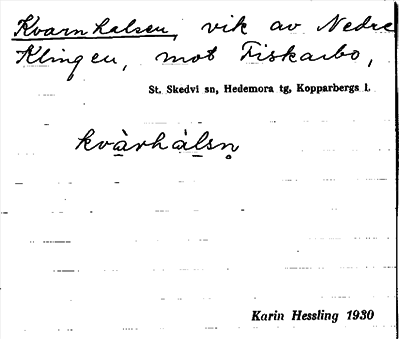 Kvarnhalsen, vik av Nedre
Klingen, mot Fiskarbo,
St. Skedvi sn, Hedemora tg, Kopparbergs l.
kvàrhàlsn̥
Karin Hessling 1930